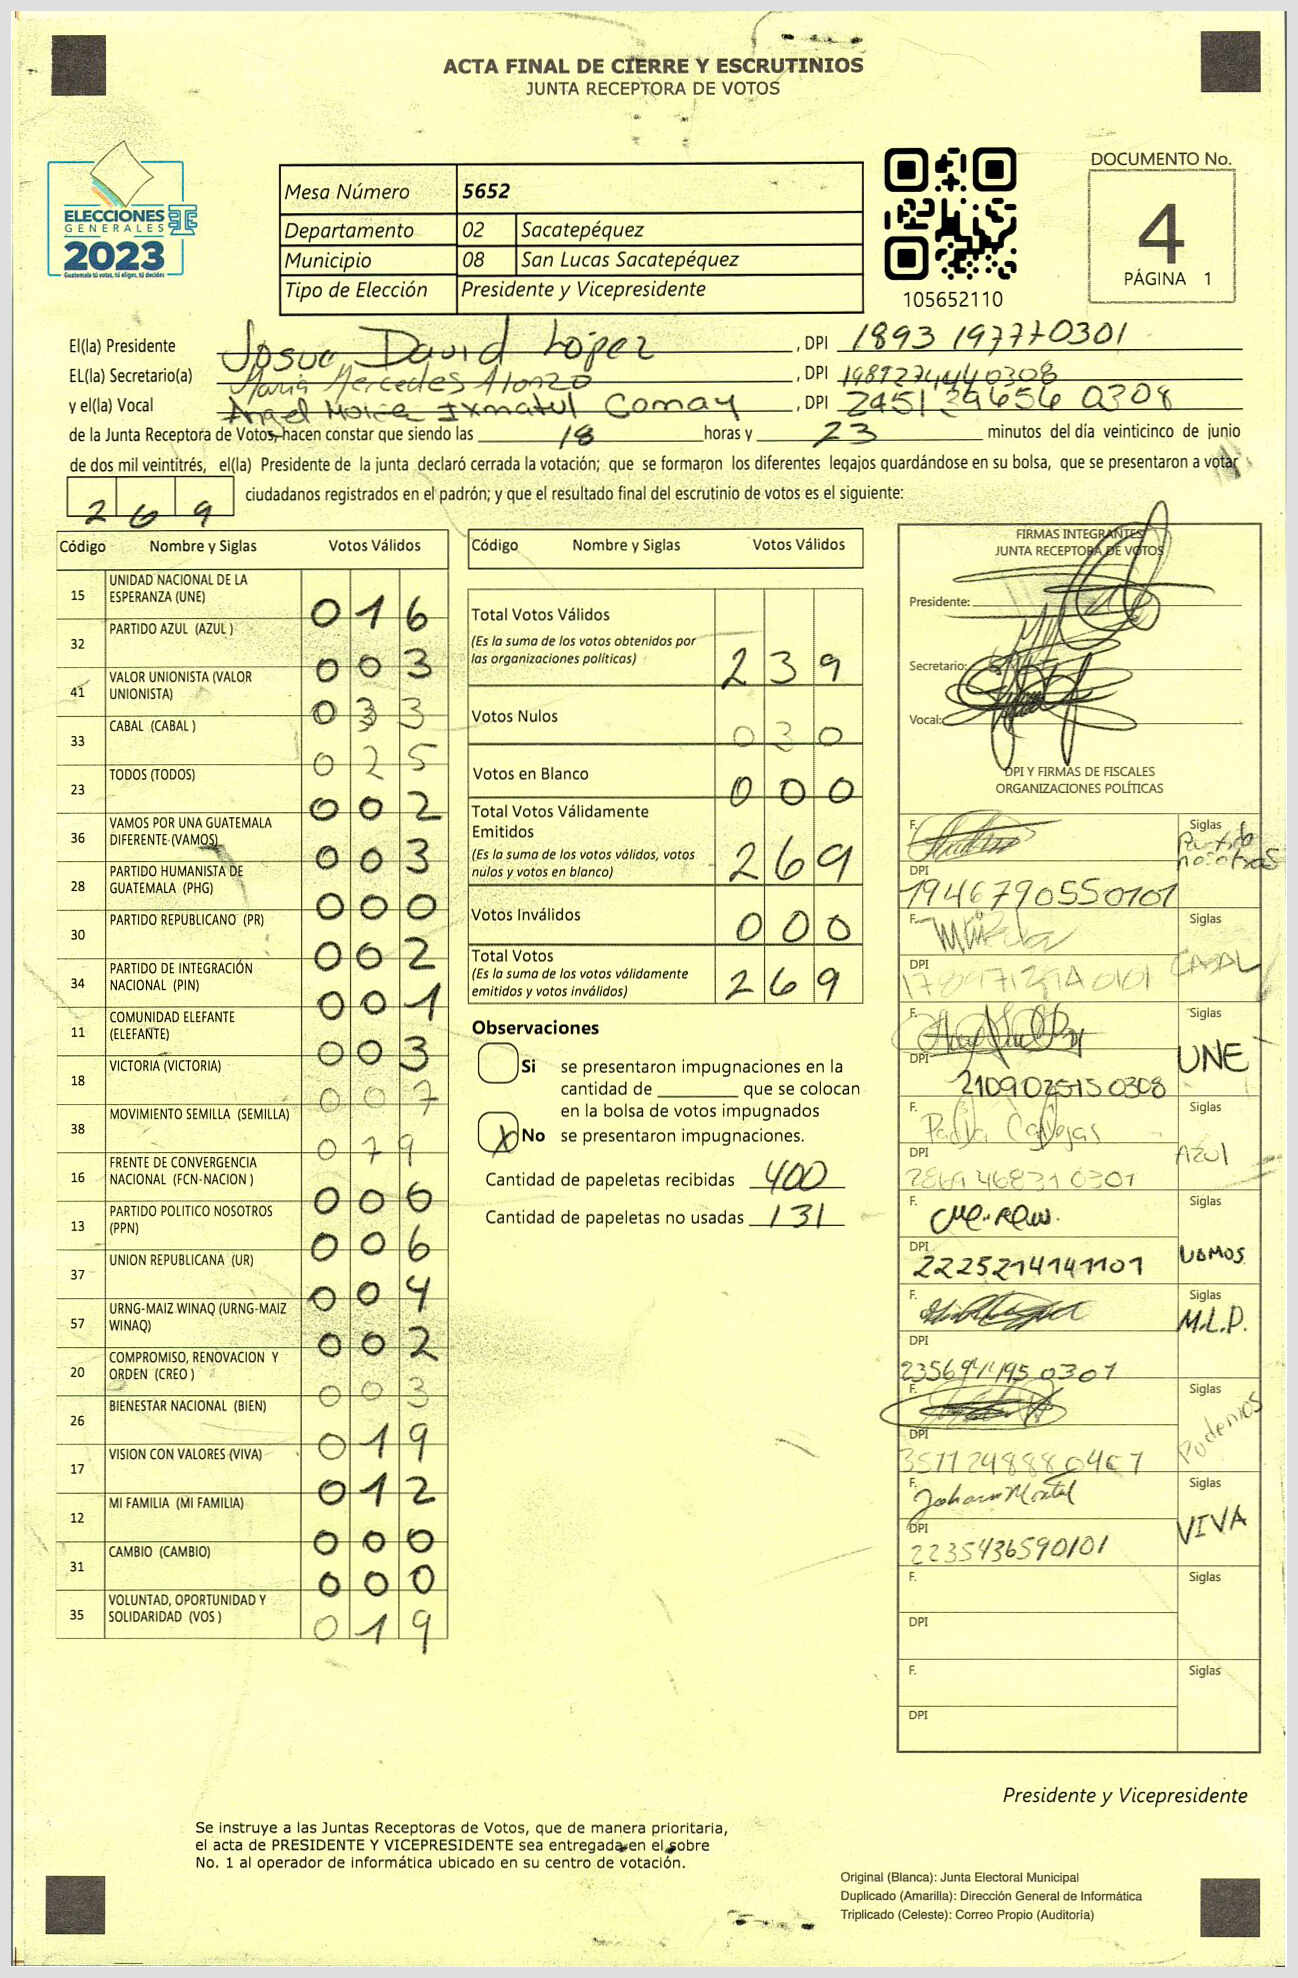 ACTA FINAL DE CIERRE Y ESCRUTINIOS
JUNTA RECEPTORA DE VOTOS
ELECCIONES
GENERALES
2023
Guatemala tú votas, tú eliges, tú decides
Mesa Número 5652
Departamento 02 Sacatepéquez
Municipio 08 San Lucas Sacatepéquez
Tipo de Elección Presidente y Vicepresidente
105652110
DOCUMENTO No.
4
PÁGINA 1
El(la) Presidente Josue David López , DPI 1893 197770301
EL(la) Secretario(a) Maria Mercedes Alonzo , DPI 1989274440308
y el(la) Vocal Angel Ixmatul Comay , DPI 2451 29656 0308
de la Junta Receptora de Votos, hacen constar que siendo las 18 horas y 23 minutos del día veinticinco de junio
de dos mil veintitrés, el(la) Presidente de la junta declaró cerrada la votación; que se formaron los diferentes legajos guardándose en su bolsa, que se presentaron a votar
269 ciudadanos registrados en el padrón; y que el resultado final del escrutinio de votos es el siguiente:
Código Nombre y Siglas Votos Válidos
15 UNIDAD NACIONAL DE LA ESPERANZA (UNE) 016
32 PARTIDO AZUL (AZUL ) 003
41 VALOR UNIONISTA (VALOR UNIONISTA) 033
33 CABAL (CABAL ) 025
23 TODOS (TODOS) 002
36 VAMOS POR UNA GUATEMALA DIFERENTE (VAMOS) 003
28 PARTIDO HUMANISTA DE GUATEMALA (PHG) 000
30 PARTIDO REPUBLICANO (PR) 002
34 PARTIDO DE INTEGRACIÓN NACIONAL (PIN) 001
11 COMUNIDAD ELEFANTE (ELEFANTE) 003
18 VICTORIA (VICTORIA) 007
38 MOVIMIENTO SEMILLA (SEMILLA) 079
16 FRENTE DE CONVERGENCIA NACIONAL (FCN-NACION ) 006
13 PARTIDO POLITICO NOSOTROS (PPN) 006
37 UNION REPUBLICANA (UR) 004
57 URNG-MAIZ WINAQ (URNG-MAIZ WINAQ) 002
20 COMPROMISO, RENOVACION Y ORDEN (CREO ) 003
26 BIENESTAR NACIONAL (BIEN) 019
17 VISION CON VALORES (VIVA) 012
12 MI FAMILIA (MI FAMILIA) 000
31 CAMBIO (CAMBIO) 000
35 VOLUNTAD, OPORTUNIDAD Y SOLIDARIDAD (VOS ) 019
Código Nombre y Siglas Votos Válidos
Total Votos Válidos 239
(Es la suma de los votos obtenidos por
las organizaciones políticas)
Votos Nulos 030
Votos en Blanco 000
Total Votos Válidamente
Emitidos 269
(Es la suma de los votos válidos, votos
nulos y votos en blanco)
Votos Inválidos 000
Total Votos 269
(Es la suma de los votos válidamente
emitidos y votos inválidos)
Observaciones
Si se presentaron impugnaciones en la
cantidad de ________ que se colocan
en la bolsa de votos impugnados
X No se presentaron impugnaciones.
Cantidad de papeletas recibidas 400
Cantidad de papeletas no usadas 131
FIRMAS INTEGRANTES
JUNTA RECEPTORA DE VOTOS
Presidente:
Secretario:
Vocal:
DPI Y FIRMAS DE FISCALES
ORGANIZACIONES POLÍTICAS
F. Siglas Partido nosotros
DPI 1946790550101
F. Siglas CABAL
DPI
F. Siglas UNE
DPI 2109025150308
F. Paola Callejas Siglas AZUL
DPI
F. Siglas VAMOS
DPI 2225214141101
F. Siglas M.L.P.
DPI
F. Siglas Podemos
DPI
F. Siglas VIVA
DPI 2235436590101
F. Siglas
DPI
F. Siglas
DPI
Presidente y Vicepresidente
Se instruye a las Juntas Receptoras de Votos, que de manera prioritaria,
el acta de PRESIDENTE Y VICEPRESIDENTE sea entregada en el sobre
No. 1 al operador de informática ubicado en su centro de votación.
Original (Blanca): Junta Electoral Municipal
Duplicado (Amarilla): Dirección General de Informática
Triplicado (Celeste): Correo Propio (Auditoría)